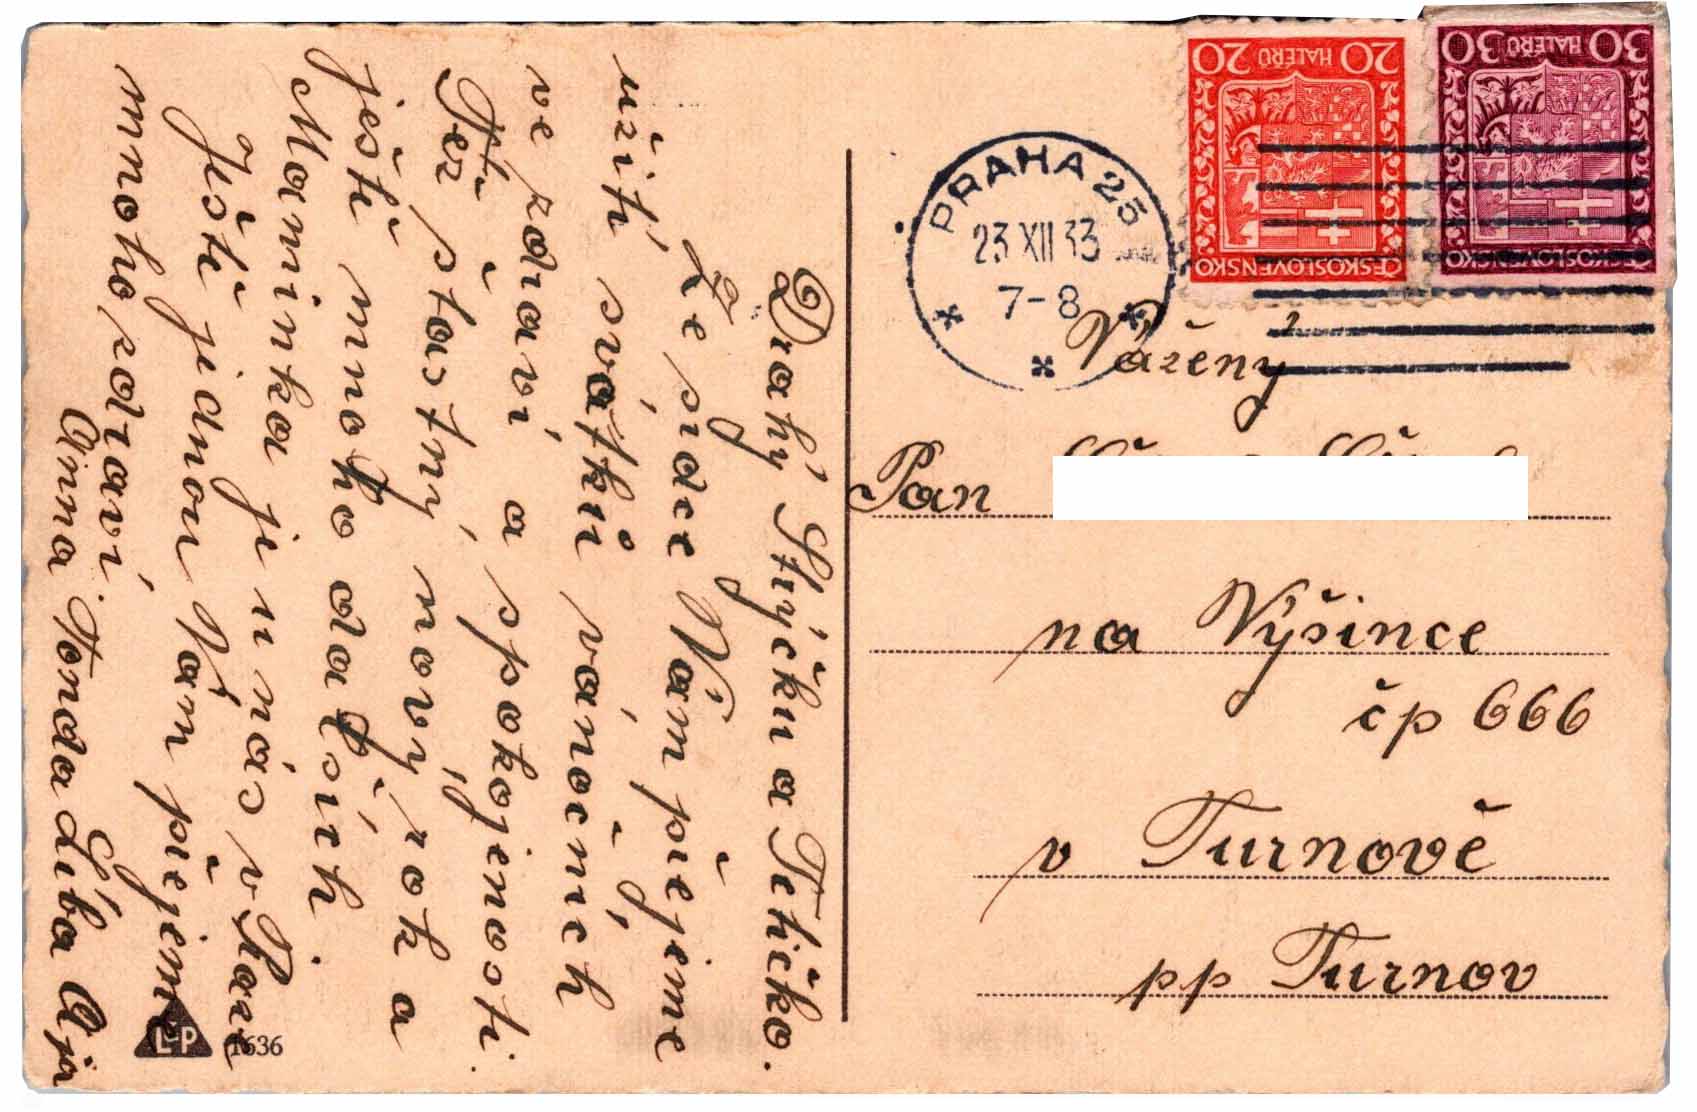 Drahý Strýčku a Tetičko.
Ze srdce Vám přejeme
užití svátků vánočních
ve zdraví a spokojenosti.
Též šťastný nový rok a
ještě mnoho dalších.
Maminka je u nás v Praze
Ještě jednou Vám přejem
mnoho zdraví
Anna Tonda Liba
LP 1636
20 HALÉŘŮ 20
ČESKOSLOVENSKO
30 HALÉŘŮ 30
ČESKOSLOVENSKO
PRAHA 25
23 XII 33
7-8
Vážený
Pan
na Výšince
čp 666
v Turnově
pp Turnov